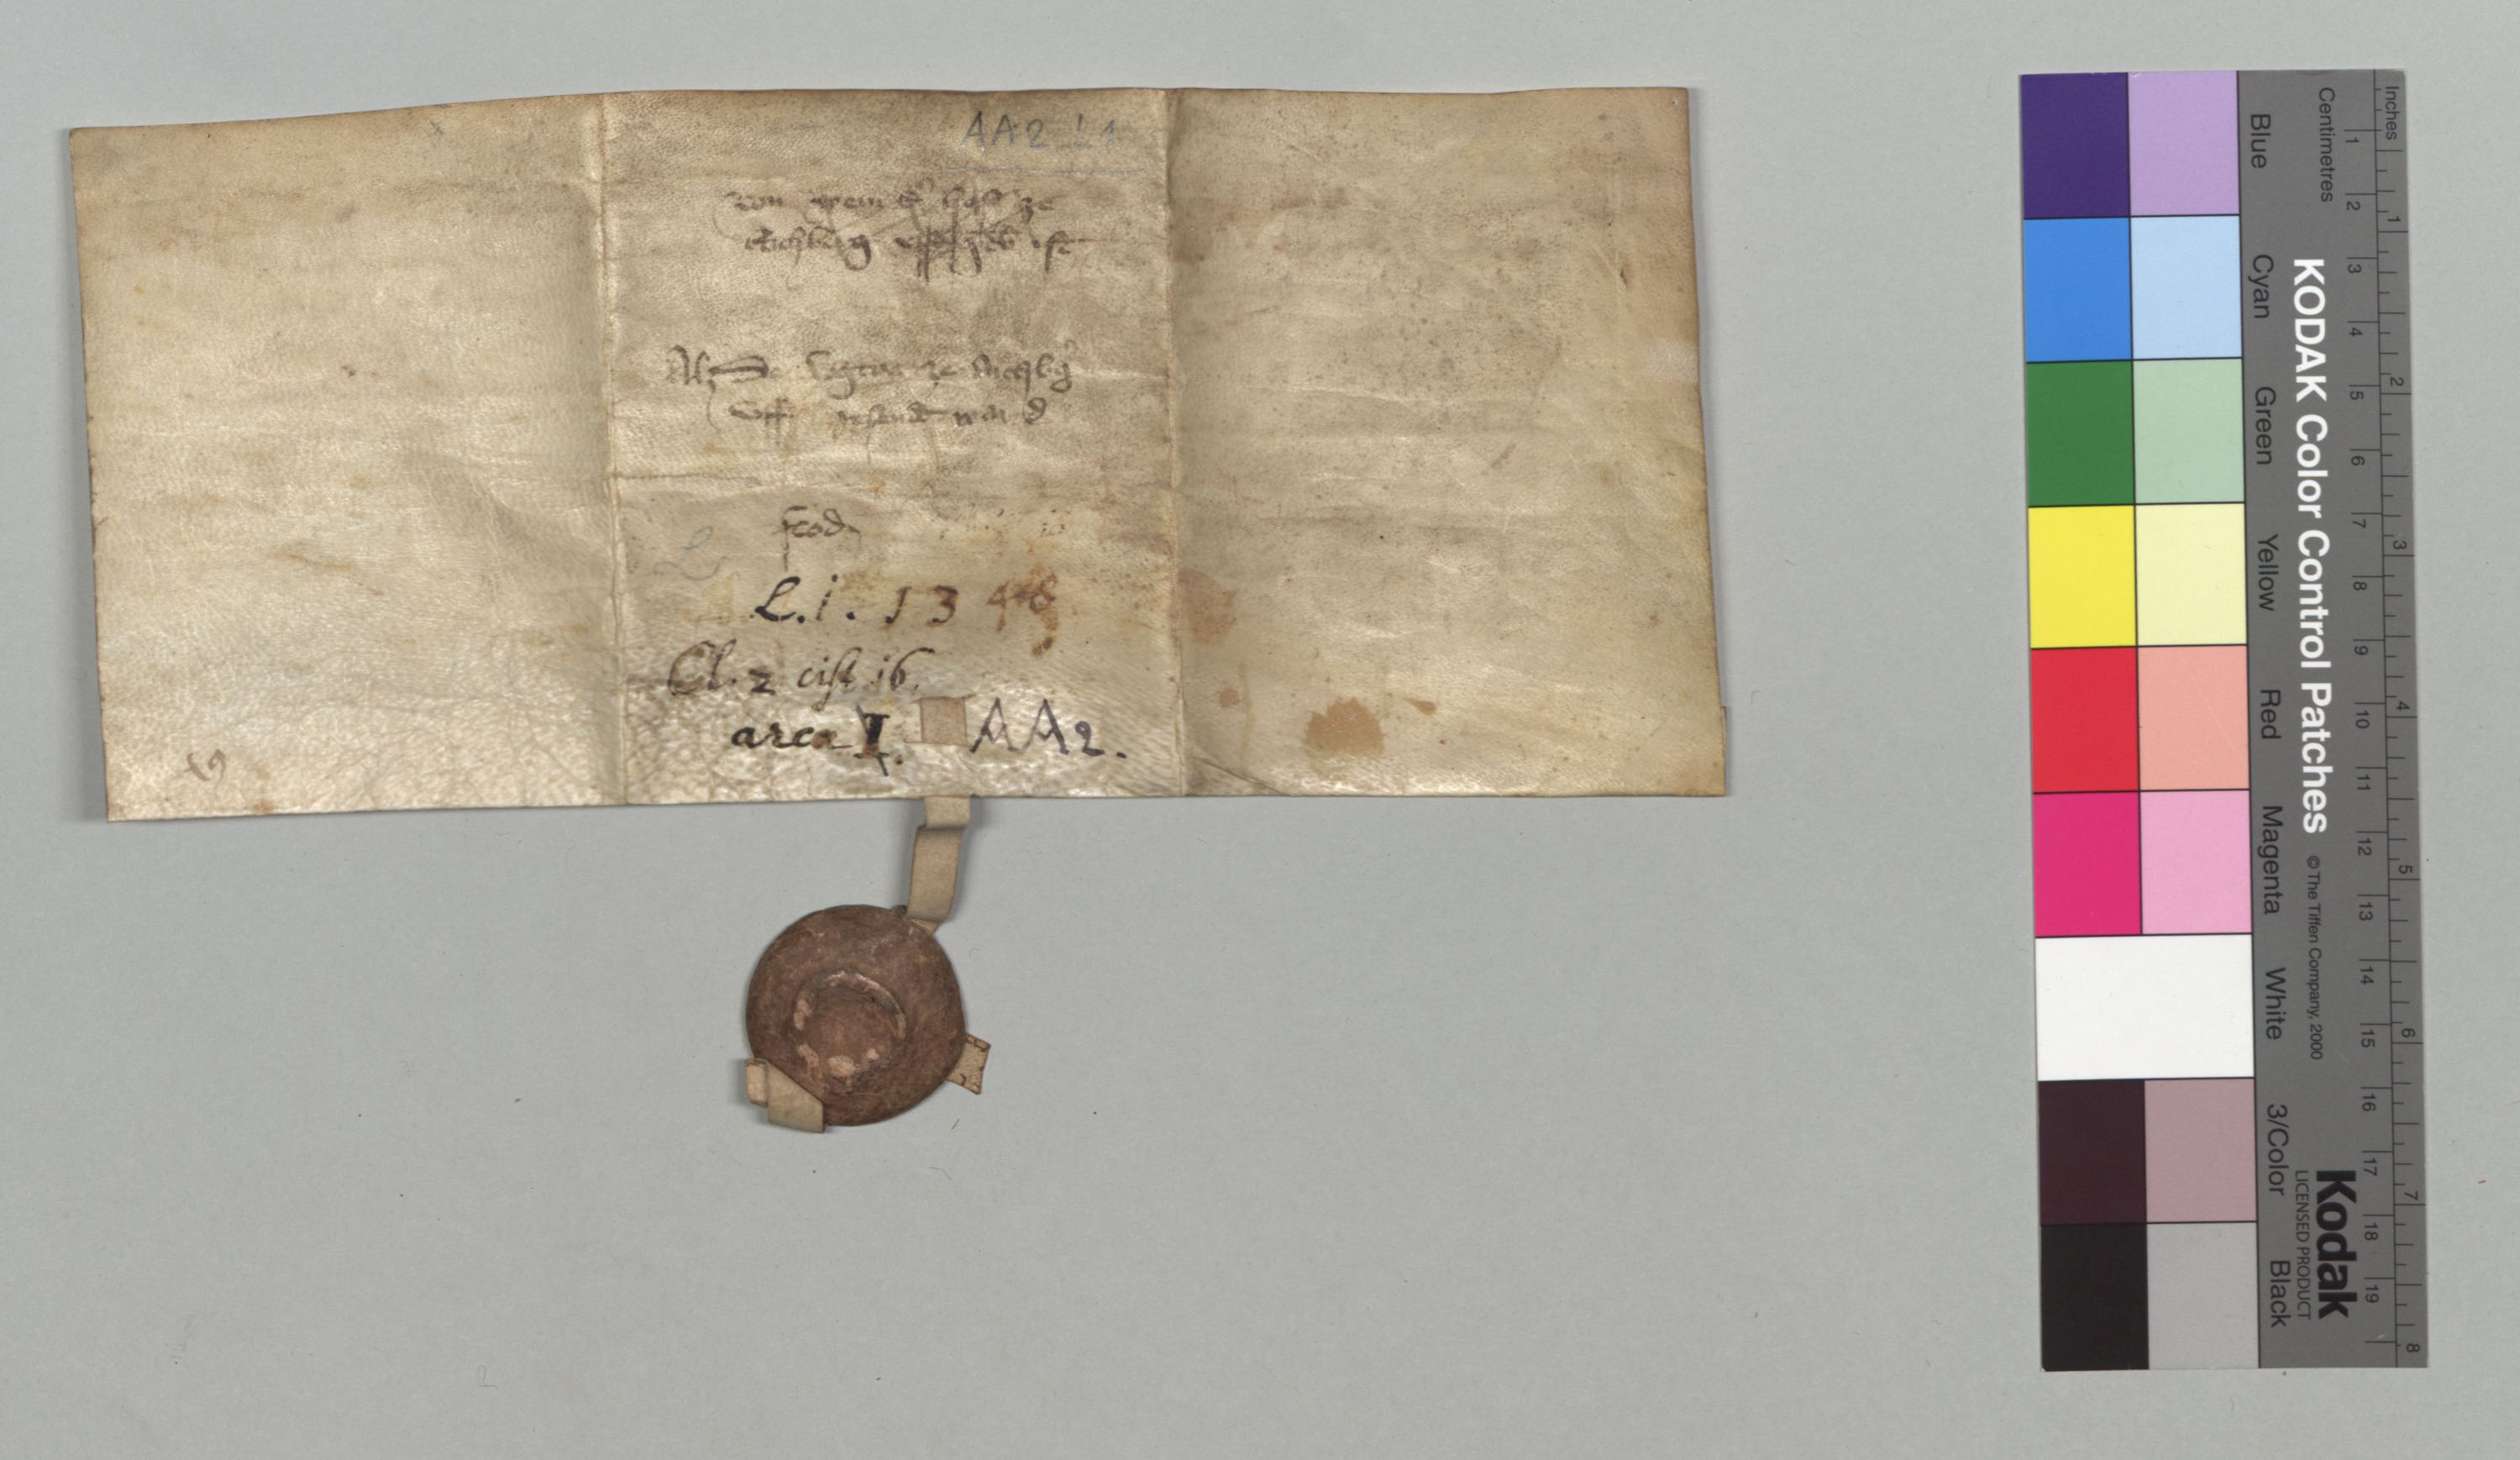 AA2 L1
von wem d' hoff ze
Aichberg uff geb ist
Als De
uff gesandt ward
feod.
L
L. i. 1348
Cl. 2 cist. i6.
arca I. AA2.
Inches
Centimetres
1 2 3 4 5 6 7 8 9 10 11 12 13 14 15 16 17 18 19
1 2 3 4 5 6 7 8
KODAK Color Control Patches
© The Tiffen Company, 2000
Kodak
LICENSED PRODUCT
Blue
Cyan
Green
Yellow
Red
Magenta
White
3/Color
Black